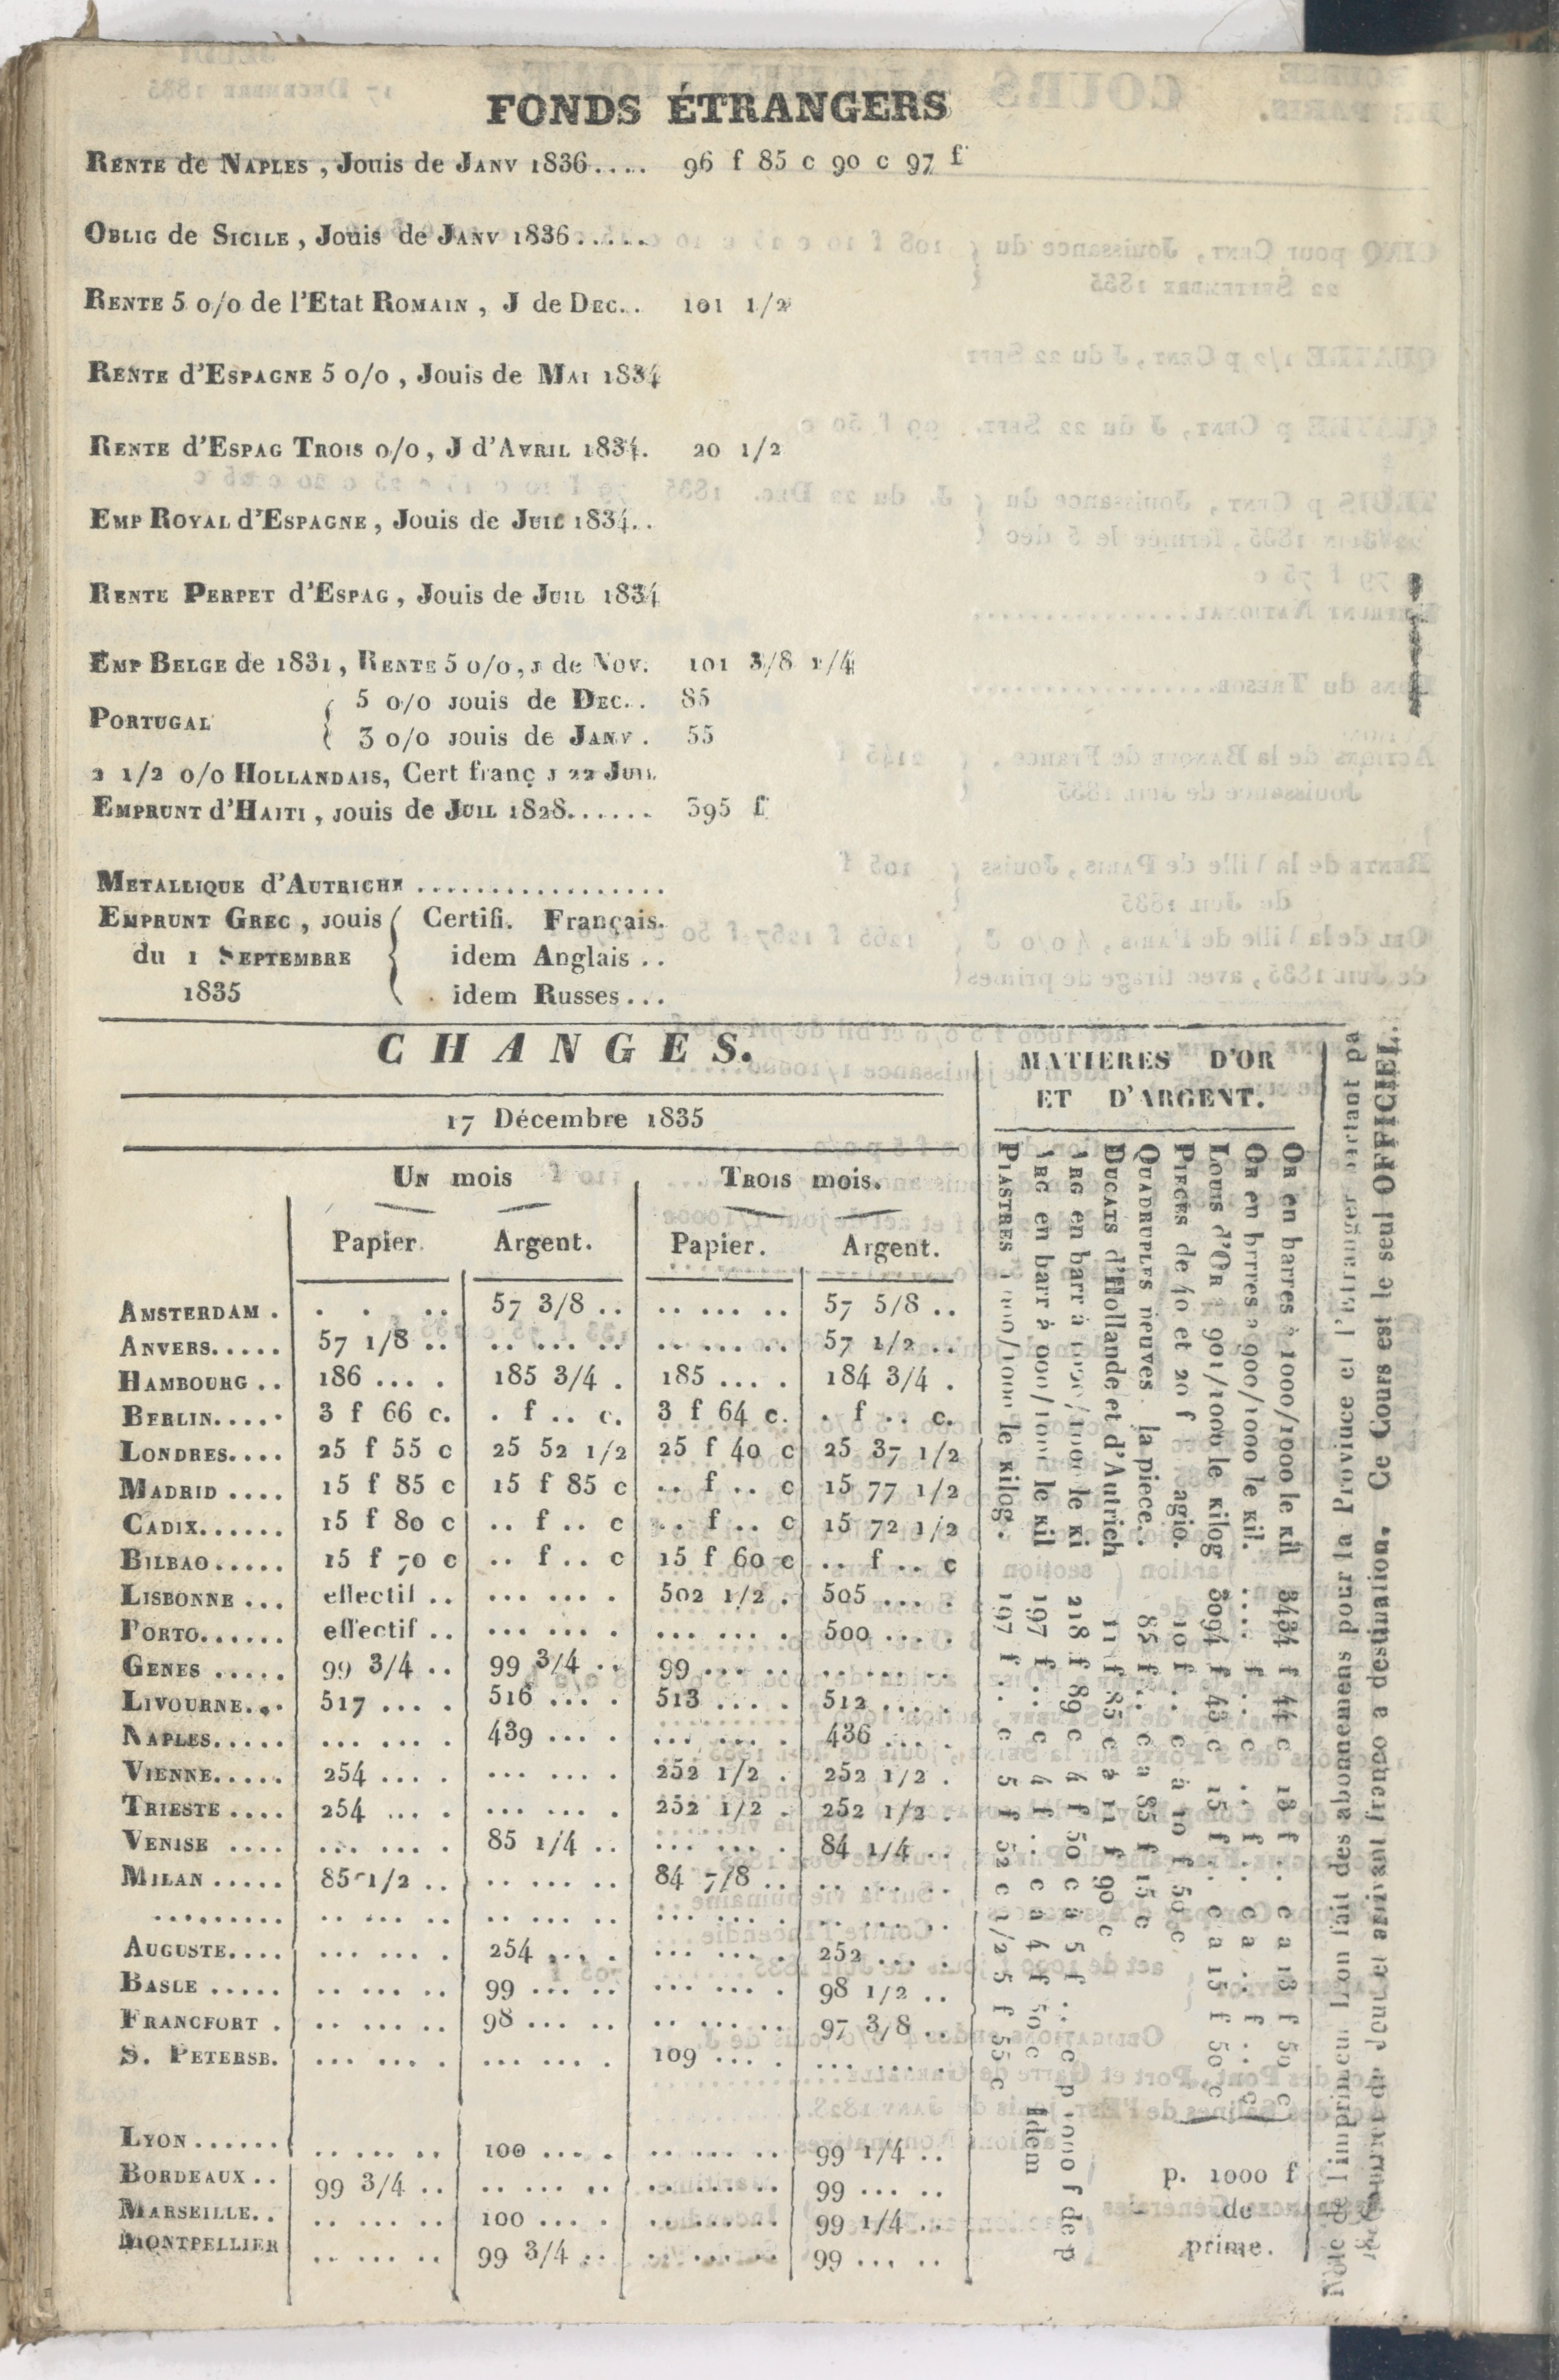 FONDS ÉTRANGERS
RENTE de NAPLES, Jouis de JANV 1836.... 96 f 85 c 90 c 97 f
OBLIG de SICILE, Jouis de JANV 1836.....
RENTE 5 o/o de l'Etat ROMAIN, J de DEC.. 101 1/2
RENTE d'ESPAGNE 5 o/o, Jouis de MAI 1834
RENTE d'ESPAG TROIS o/o, J d'AVRIL 1834. 20 1/2
EMP ROYAL d'ESPAGNE, Jouis de JUIL 1834..
RENTE PERPET d'ESPAG, Jouis de JUIL 1834
EMP BELGE de 1831, RENTE 5 o/o, J de NOV. 101 3/8 1/4
PORTUGAL { 5 o/o JOUIS de DEC.. 85
{ 3 o/o JOUIS de JANV. 55
2 1/2 o/o HOLLANDAIS, Cert franç J 22 JUIL
EMPRUNT d'HAITI, JOUIS de JUIL 1828...... 395 f
METALLIQUE d'AUTRICHE .................
EMPRUNT GREC, jouis { Certifi. Français.
du 1 SEPTEMBRE { idem Anglais ..
1835 { idem Russes...
CHANGES.
17 Décembre 1835
UN mois TROIS mois.
Papier. Argent. Papier. Argent.
AMSTERDAM . . . .. 57 3/8 .. .. ... .. 57 5/8 ..
ANVERS..... 57 1/8 .. .. ... .. .. ... .. 57 1/2 ..
HAMBOURG .. 186 ... . 185 3/4 . 185 ... . 184 3/4 .
BERLIN..... 3 f 66 c. . f .. c. 3 f 64 c. . f .. c.
LONDRES.... 25 f 55 c 25 52 1/2 25 f 40 c 25 37 1/2
MADRID .... 15 f 85 c 15 f 85 c .. f .. c 15 77 1/2
CADIX...... 15 f 80 c .. f .. c .. f .. c 15 72 1/2
BILBAO..... 15 f 70 c .. f .. c 15 f 60 c .. f .. c
LISBONNE ... effectif .. ... ... . 502 1/2 . 505 ... .
PORTO...... effectif .. ... ... . ... ... . 500 ... .
GENES ..... 99 3/4 .. 99 3/4 .. 99 ... .. .. ... ..
LIVOURNE... 517 ... . 516 ... . 513 ... . 512 ... .
NAPLES..... ... ... . 439 ... . ... ... . 436 ... .
VIENNE..... 254 ... . ... ... . 252 1/2 . 252 1/2 .
TRIESTE .... 254 ... . ... ... . 252 1/2 . 252 1/2 .
VENISE .... ... ... . 85 1/4 .. ... ... . 84 1/4 ..
MILAN ..... 85 1/2 .. .. ... .. 84 7/8 .. .. ... ..
......... .. ... .. .. ... .. ... ... . .. ... ..
AUGUSTE.... ... ... . 254 ... . ... ... . 252 ... .
BASLE ..... .. ... .. 99 ... .. ... ... . 98 1/2 ..
FRANCFORT . .. ... .. 98 ... .. .. ... .. 97 3/8 ..
S. PETERSB. ... ... . ... ... . 109 ... . ... ... .
LYON...... .. ... .. 100 ... . .. ... .. 99 1/4 ..
BORDEAUX .. 99 3/4 .. .. ... .. .. ... .. 99 ... ..
MARSEILLE.. .. ... .. 100 ... . .. ... .. 99 1/4 ..
MONTPELLIER .. ... .. 99 3/4 .. .. ... .. 99 ... ..
MATIERES D'OR
ET D'ARGENT.
OR en barres à 1000/1000 le Kil 3434 f 44 c 18 f .. c a 18 f 50 c
OR en brres a 900/1000 le Kil. .... f .. c .. f .. c a .. f .. c
LOUIS d'OR a 901/1000 le Kilog 3094 f 43 c 15 f .. c a 15 f 50 c
PIECES de 40 et 20 f agio. 10 f .. c à 10 f 50 c
QUADRUPLES neuves la piece.. 85 f .. c a 85 f 15 c
DUCATS d'Hollande et d'Autrich 11 f 85 c à 11 f 90 c
ARG en barr à 1000/1000 le Ki 218 f 89 c 4 f 50 c à 5 f .. c p 1000 f de p
ARG en barr à 900/1000 le Kil 197 f .. c 4 f .. c à 4 f 50 c Idem
PIASTRES 900/1000 le Kilog. 197 f .. c 5 f 52 c 1/2 5 f 55 c
p. 1000 f
de
prime.
Note de l'imprimeur L'on fait des abonnemens pour la Province et l'Etranger partant pa
le Courrier du Jour et arrivant franco a destination. Ce Cours est le seul OFFICIEL.